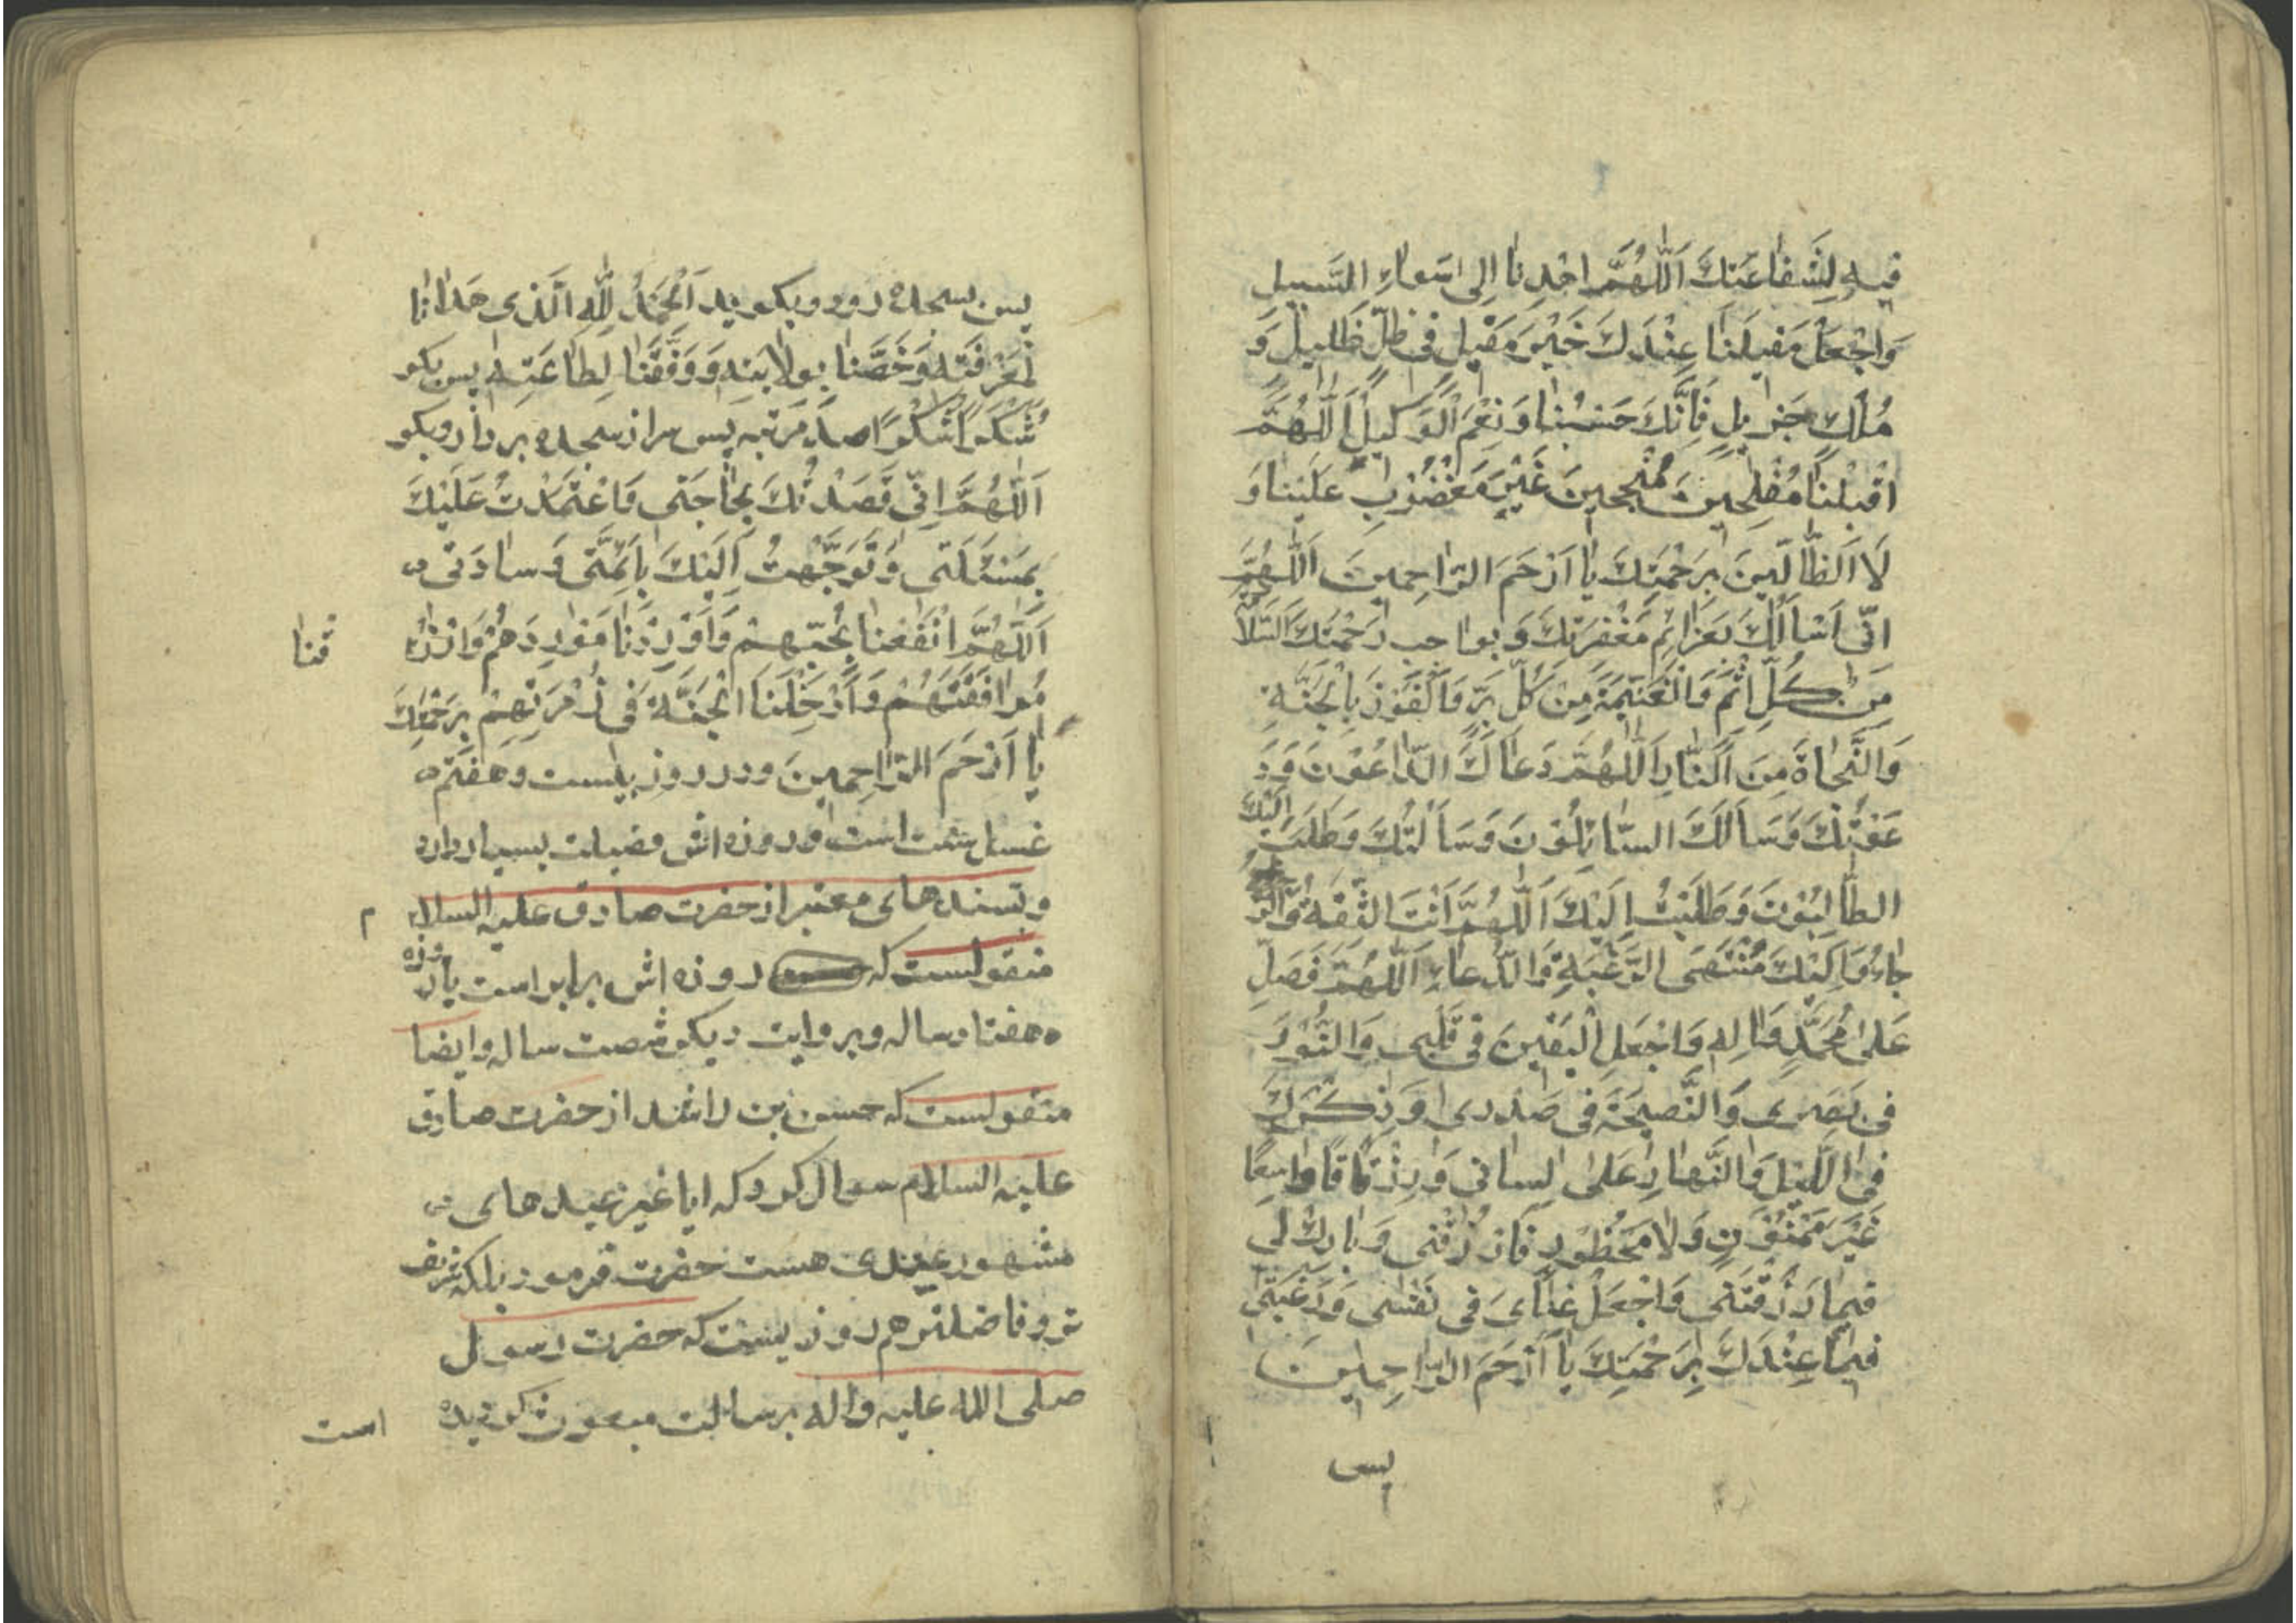 فيهِ لِشَفاعَتِكَ اَللّهُمَّ اهْدِنا اِلى سَواءِ السَّبيلِ
وَاجْعَلْ مَقيلَنا عِنْدَكَ خَيْرَ مَقيلٍ فى ظِلٍّ ظَليلٍ وَ
مُلكٍ جَزيلٍ فَاِنَّكَ حَسْبُنا وَنِعْمَ الْوَكيلُ اَللّهُمَّ
اقْبِلْنا مُفْلِحينَ مُنْجِحينَ غَيْرَ مَغْضُوبٍ عَلَيْنا وَ
لَا الظّالّينَ بِرَحْمَتِكَ يا اَرْحَمَ الرّاحِمينَ اَللّهُمَّ
اِنّى اَسْاَلُكَ بَعَزائِمِ مَغْفِرَتِكَ وَبِواجِبِ رَحْمَتِكَ السَّلامَةَ
مِنْ كُلِّ اِثْمٍ وَالْغَنيمَةَ مِنْ كُلِّ بِرٍّ وَالْفَوْزَ بِالْجَنَّةِ
وَالنَّجاةَ مِنَ النّارِ اَللّهُمَّ دَعاكَ الدّاعُوْنَ وَدَ
عَوْتُكَ وَسَاَلَكَ السّائِلُوْنَ وَسَاَلْتُكَ وَطَلَبَ اِلَيْكَ
الطّالِبُوْنَ وَطَلَبْتُ اِلَيْكَ اَللّهُمَّ اَنْتَ الثِّقَةُ وَالرَّ
جاءُ وَاِلَيْكَ مُنْتَهَى الرَّغْبَةِ وَالدُّعاءِ اَللّهُمَّ فَصَلِّ
عَلى مُحَمَّدٍ وَالِهِ وَاجْعَلِ الْيَقينَ فى قَلْبى وَالنُّوْرَ
فى بَصَرى وَالنَّصيحَةَ فى صَدْرى وَذِكْرَكَ
فِى اللَّيْلِ وَالنَّهارِ عَلى لِسانى وَرِزْقًا واسِعًا
غَيْرَ مَمْنُوْنٍ وَلا مَحْظُورٍ فَارْزُقْنى وَبارِكْ لى
فيما رَزَقْتَنى وَاجْعَلْ غِناىَ فى نَفْسى وَرَغْبَتى
فيما عِنْدَكَ بِرَحْمَتِكَ يا اَرْحَمَ الرّاحِمينَ
پس
پس بسجده رود و بكويد اَلْحَمْدُ لِلّهِ الَّذى هَدانا
لِمَعْرِفَتِه وَخَصَّنا بِوِلايَتِه وَوَفَّقَنا لِطاعَتِه پس بكو
شُكْرًا شُكْرًا صد مرتبه پس سر از سجده بردار و بكو
اَللّهُمَّ اِنّى قَصَدْتُكَ بِحاجَتى وَاعْتَمَدْتُ عَلَيْكَ
بِمَسْئَلَتى وَتَوَجَّهْتُ اِلَيْكَ بِاَئِمَّتى وَسادَتى
اَللّهُمَّ انْفَعْنا بِحُبِّهِمْ وَاَوْرِدْنا مَوْرِدَهُمْ وَارْزُ قْنا
مُرافَقَتَهُمْ وَاَدْخِلْنَا الْجَنَّةَ فى زُمْرَتِهِمْ بِرَحْمَتِكَ
يا اَرْحَمَ الرّاحِمينَ و در روز بيست و هفتم
غسل سنت است و روزه اش فضيلت بسيار دارد
و بسندهاى معتبر از حضرت صادق عليه السلام
منقولست كه روزه اش برابر است با روزه
هفتاد ساله و بروايت ديكر شصت ساله و ايضا
منقولست كه حسن بن راشد از حضرت صادق
عليه السلام سوال كرد كه ايا غير عيدهاى
مشهور عيدى هست حضرت فرمود بلكه شريف
تر و فاضلتر هم روزيست كه حضرت رسول
صلى الله عليه و اله برسالت مبعوث كرديده است